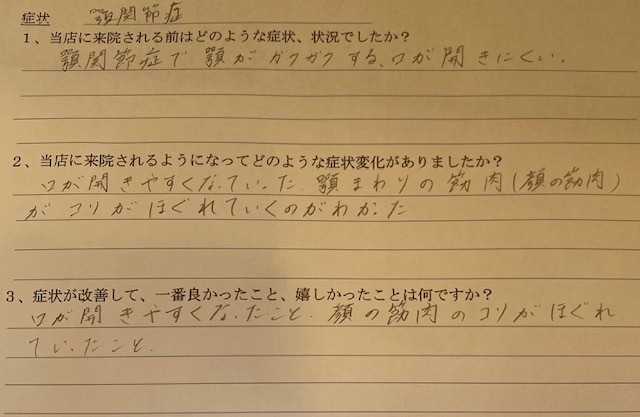 症状 顎関節症
1、当店に来院される前はどのような症状、状況でしたか？
顎関節症で顎がガクガクする、口が開きにくい。
2、当店に来院されるようになってどのような症状変化がありましたか？
口が開きやすくなっていった。顎まわりの筋肉(顔の筋肉)
がコリがほぐれていくのがわかった
3、症状が改善して、一番良かったこと、嬉しかったことは何ですか？
口が開きやすくなったこと。顔の筋肉のコリがほぐれ
ていったこと。